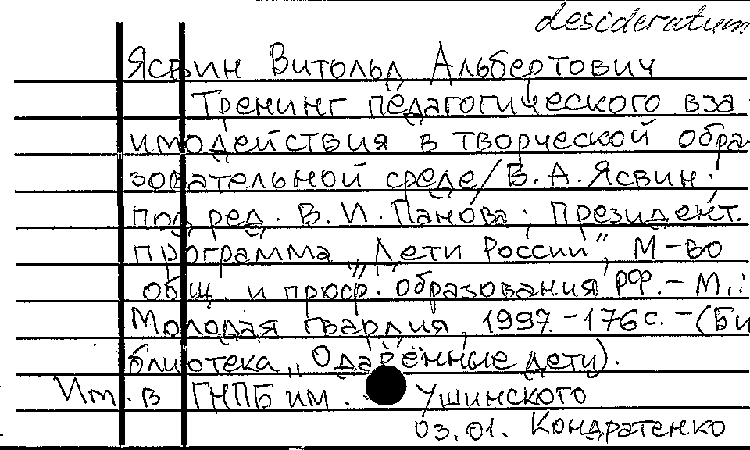 desideratum
Ясвин Витольд Альбертович
Тренинг педагогического вза-
имодействия в творческой обра-
зовательной среде/В.А.Ясвин;
под ред. В.И.Панова; Президент.
программа "Дети России", М-во
общ. и проф. образования РФ.-М.:
Молодая гвардия, 1997.-176с.-(Би
блиотека „Одарённые дети).
Им. в ГНПБ им. Ушинского
03.01. Кондратенко